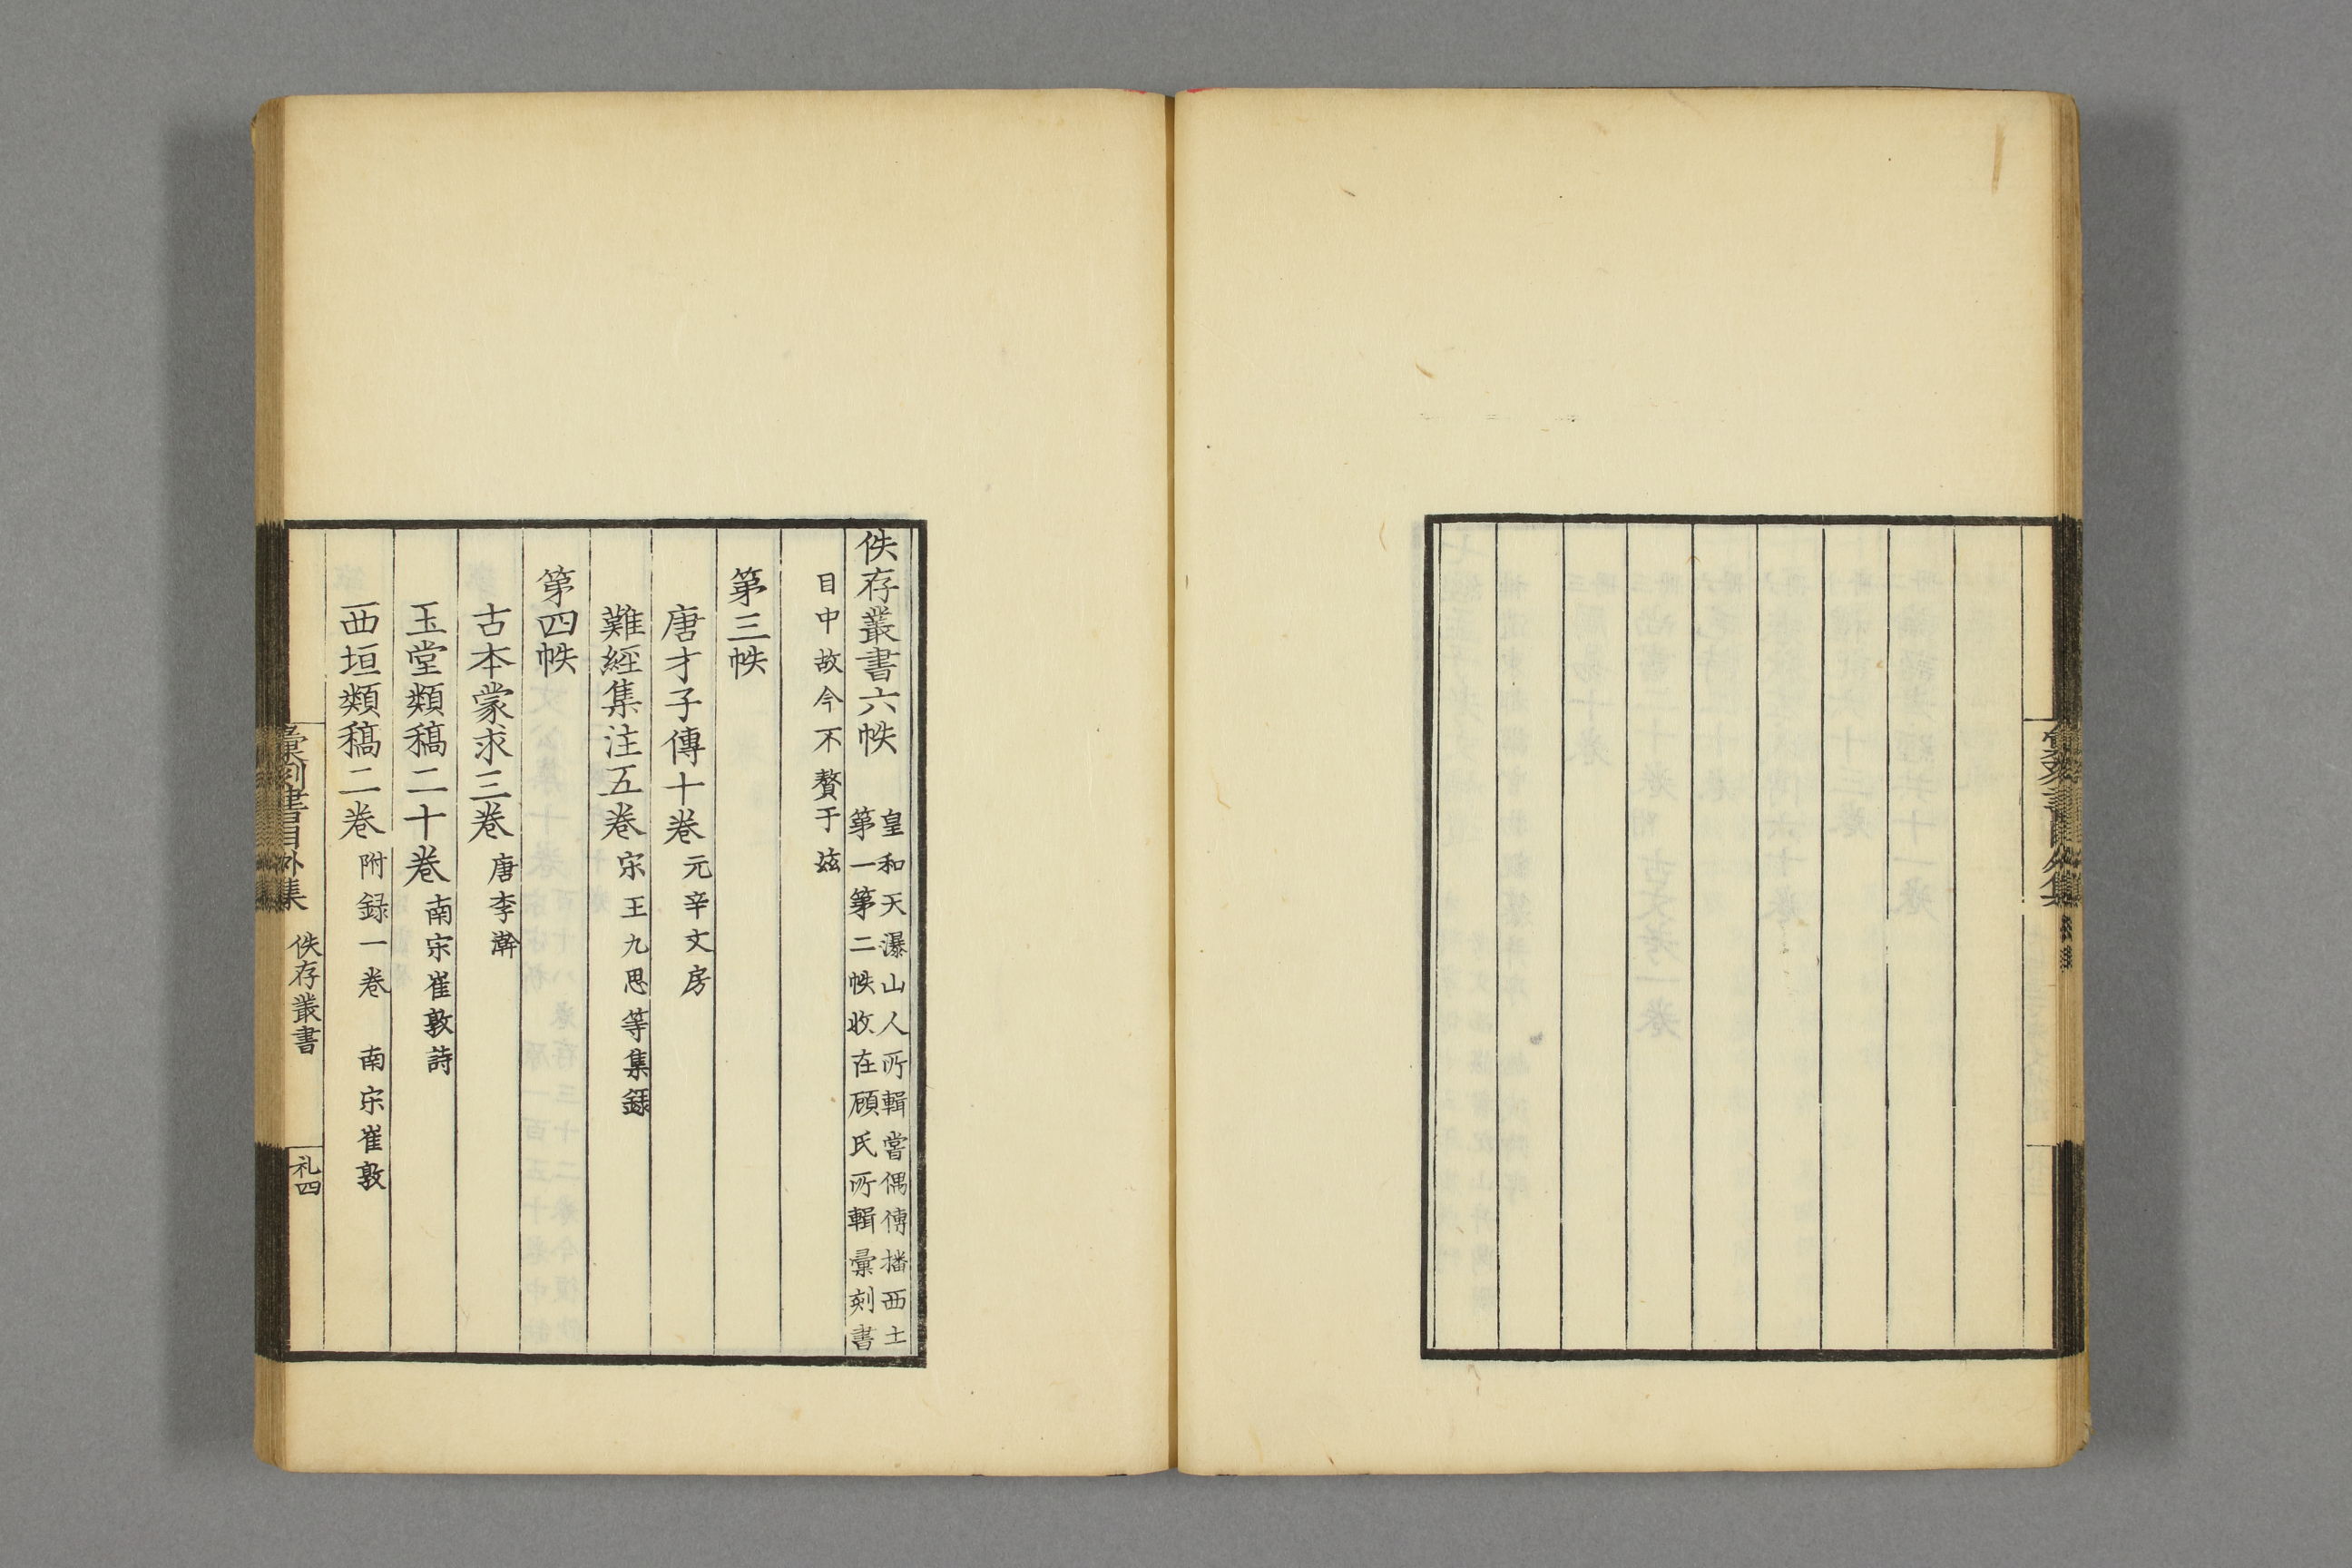 佚存叢書六帙 皇和天瀑山人所輯嘗偶傳播西土
第一第二帙收在顧氏所輯彙刻書
目中故今不贅于茲
第三帙
唐才子傳十卷 元辛文房
難經集注五卷 宋王九思等集録
第四帙
古本蒙求三卷 唐李澣
玉堂類稿二十卷 南宋崔敦詩
西垣類稿二卷 附録一卷 南宋崔敦
彙刻書目外集 佚存叢書 礼四